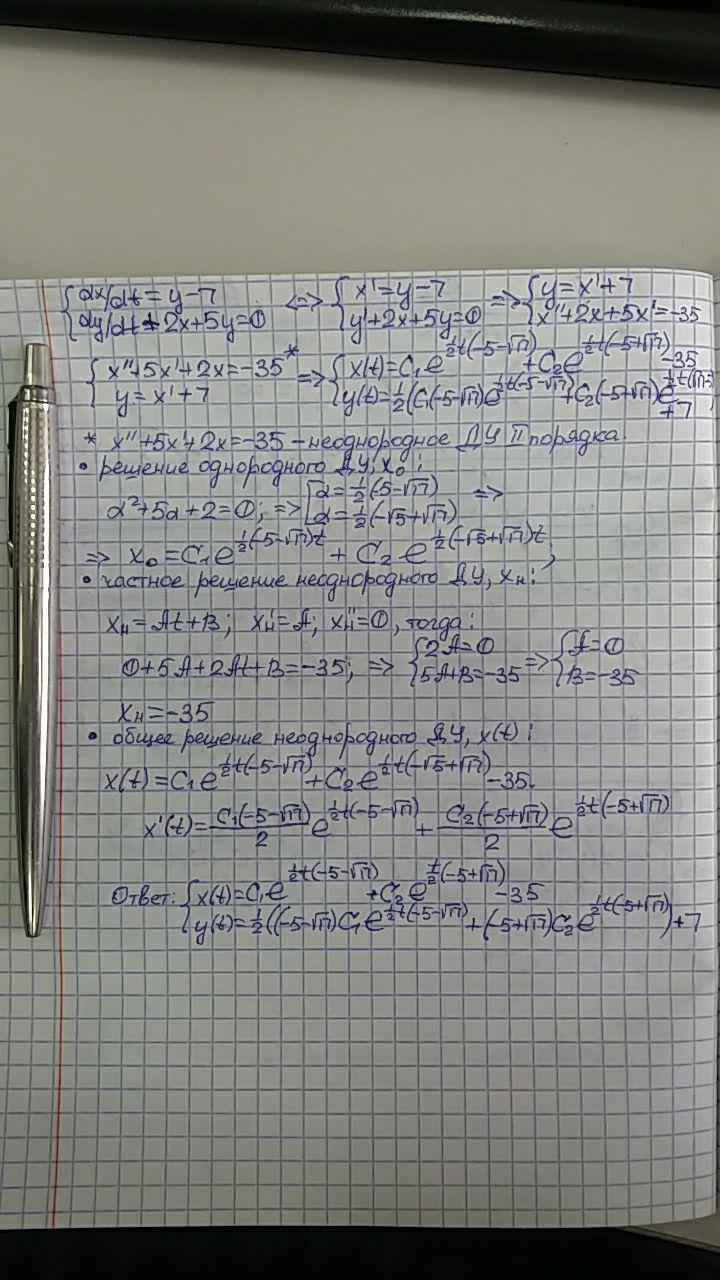 {dx/dt = y-7 <=> {x' = y-7 => {y = x'+7
{dy/dt + 2x+5y=0 {y'+2x+5y=0 {x''+2x+5x'=-35
{x''+5x'+2x=-35* => {x(t)=C₁e^{½t(-5-√17)}+C₂e^{½t(-5+√17)}-35
{y=x'+7 {y(t)=½(C₁(-5-√17)e^{½t(-5-√17)}+C₂(-5+√17)e^{½t(√17-5)}
+7
* x''+5x'+2x=-35 – неоднородное ДУ II порядка.
• решение однородного ДУ, x₀:
α²+5α+2=0; => [α=½(-5-√17) =>
[α=½(-√5+√17)
=> x₀=C₁e^{½(-5-√17)t} + C₂e^{½(-√5+√17)t};
• частное решение неоднородного ДУ, xн:
xн=At+B; xн'=A; xн''=0, тогда:
0+5A+2At+B=-35; => {2A=0 => {A=0
{5A+B=-35 {B=-35
xн=-35
• общее решение неоднородного ДУ, x(t):
x(t)=C₁e^{½t(-5-√17)}+C₂e^{½t(-√5+√17)}-35.
x'(t)=C₁(-5-√17)/2 e^{½t(-5-√17)} + C₂(-5+√17)/2 e^{½t(-5+√17)}
Ответ: {x(t)=C₁e^{½t(-5-√17)}+C₂e^{t/2(-5+√17)}-35
{y(t)=½((-5-√17)C₁e^{½t(-5-√17)}+(-5+√17)C₂e^{½t(-5+√17)})+7